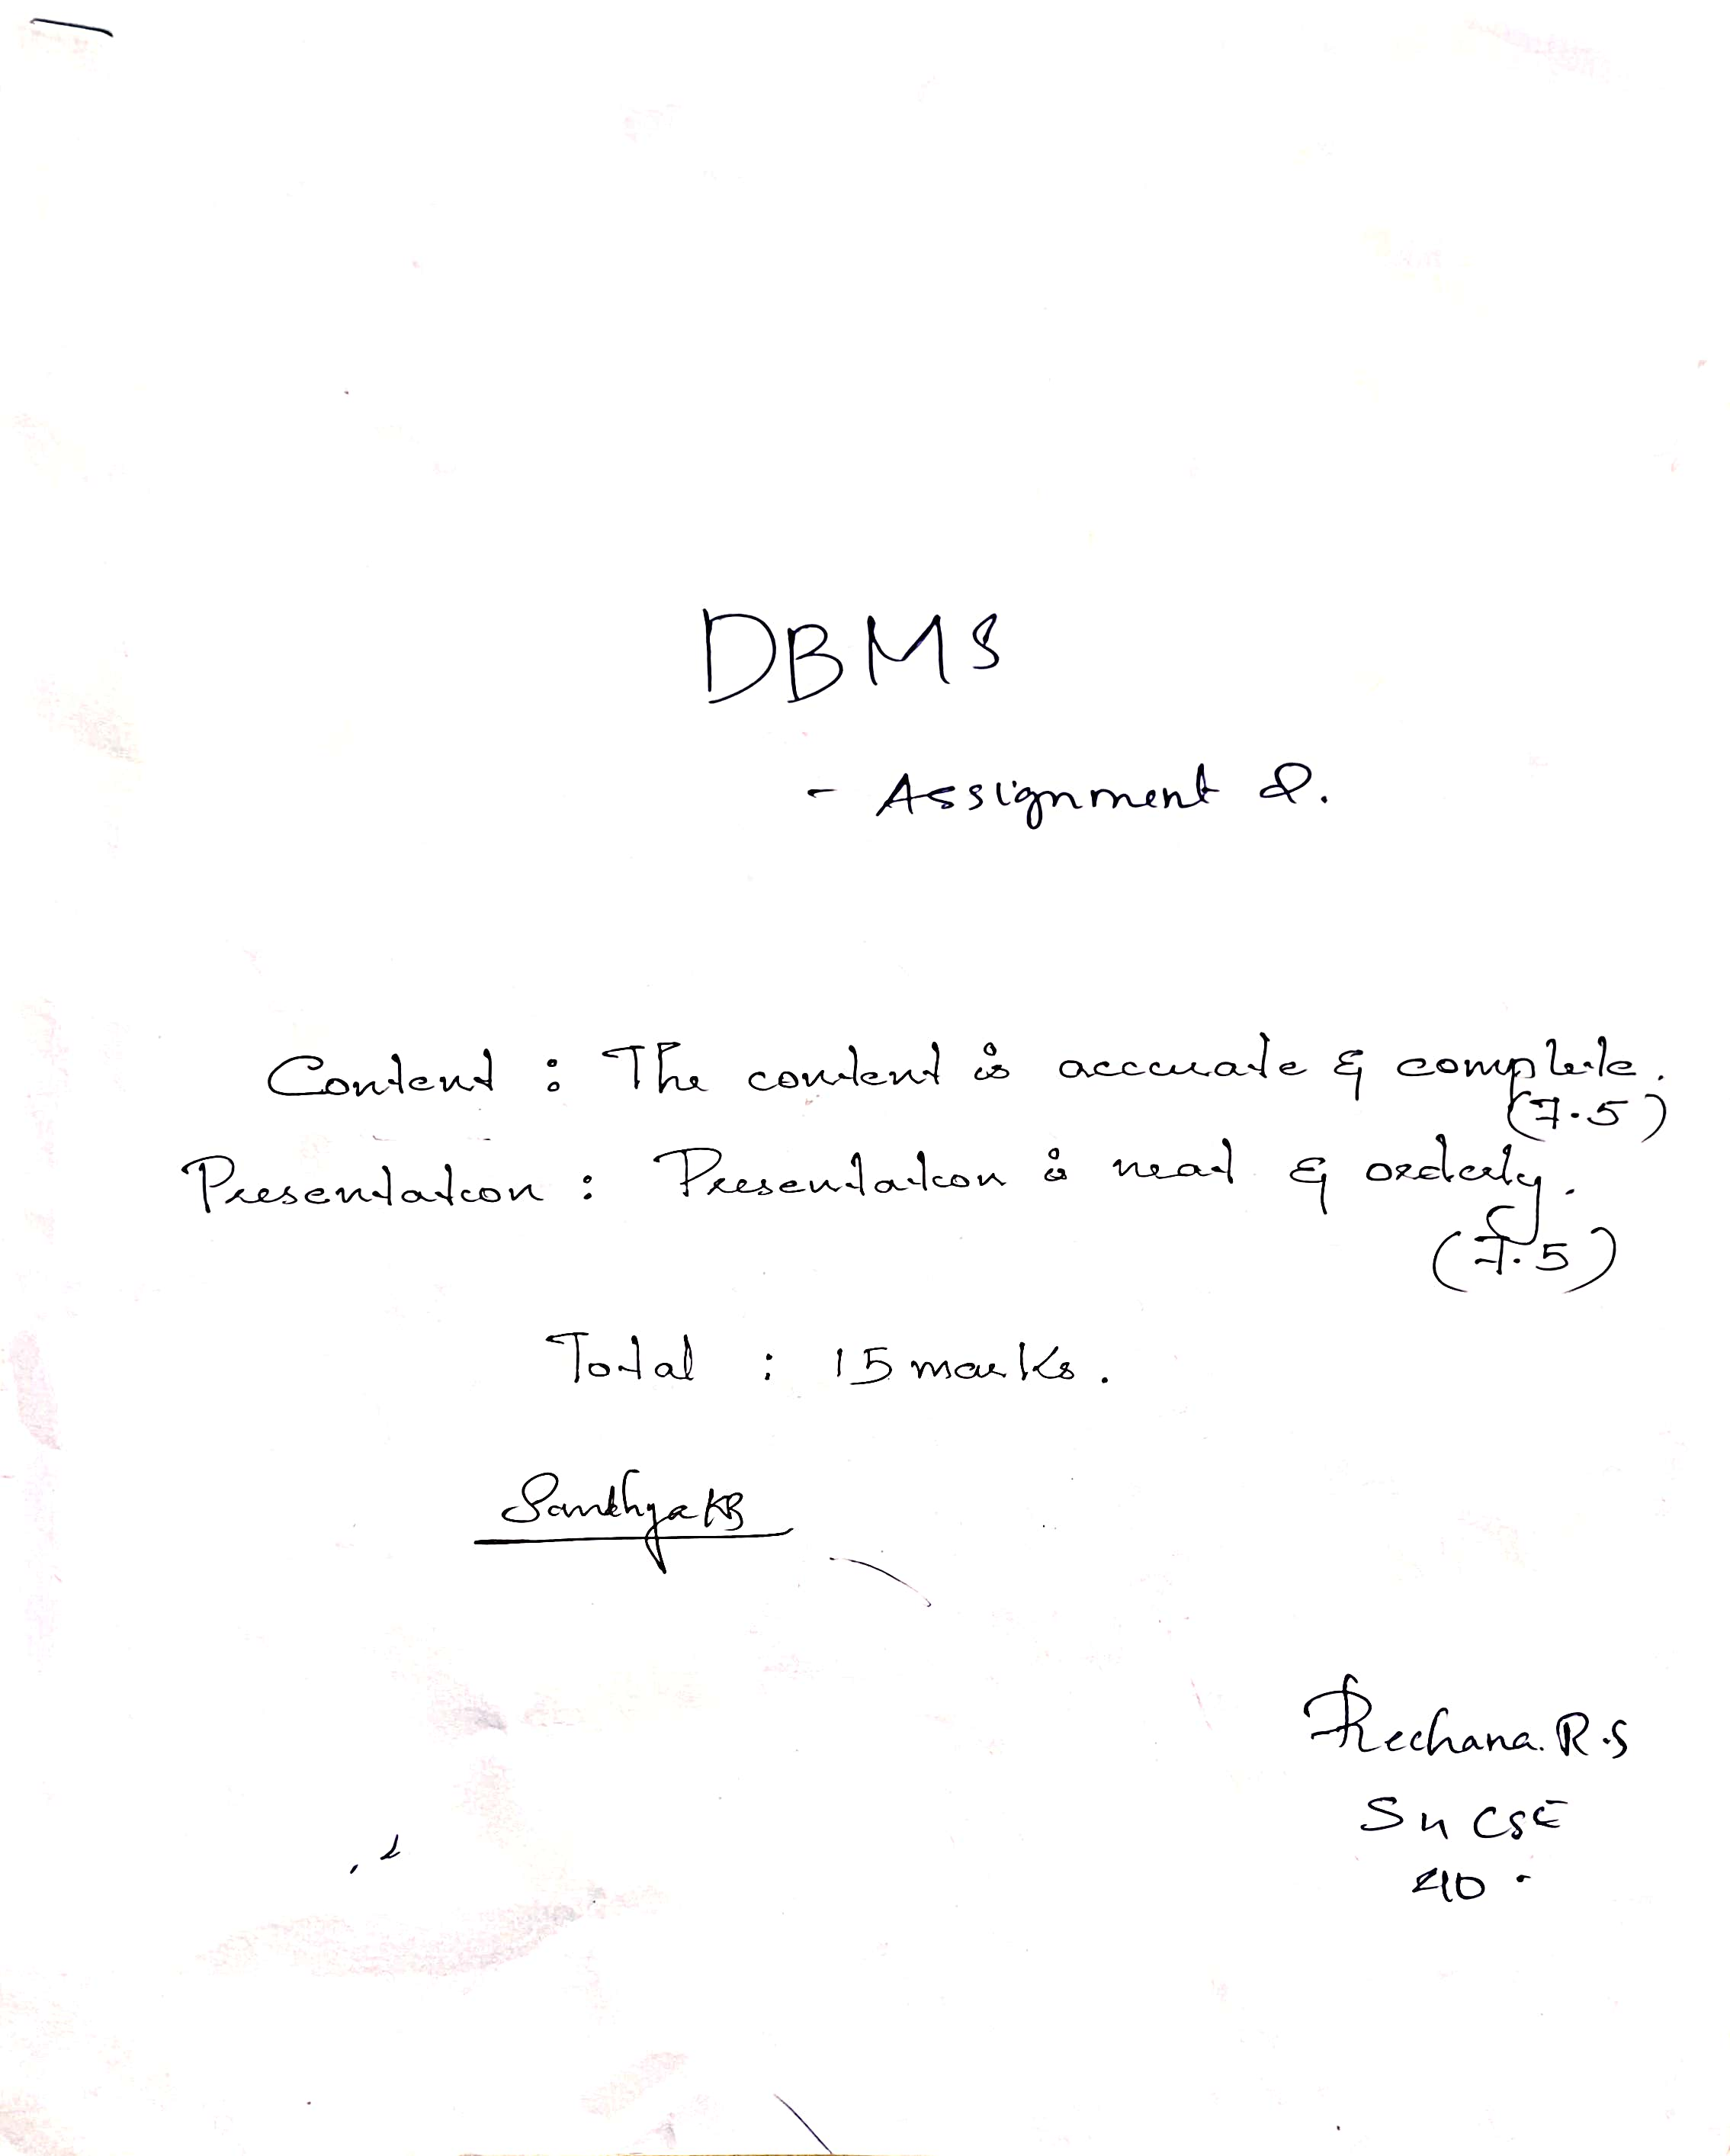 DBMS
- Assignment 2.
Content : The content is accurate & complete.
(7.5)
Presentation : Presentation is neat & orderly.
(7.5)
Total : 15 marks.
Sandhya KB
Rechana. R.S
S4 CSE
40.